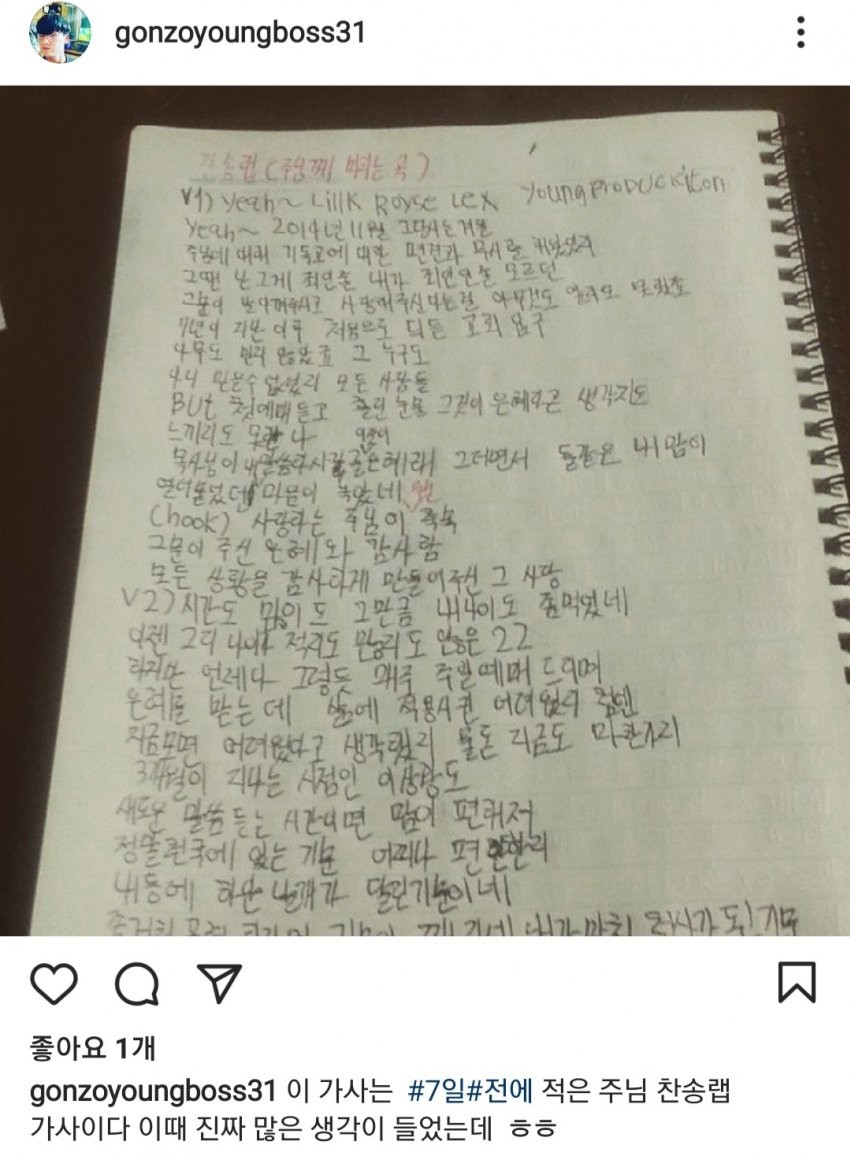 gonzoyoungboss31
찬송랩(주님께 바치는 곡)
V1) Yeah~ Lill K Royce Lex YoungProDuckiton
Yeah~ 2014년 11월 그당시는 겨울
주님에 대해 기독교에 대한 편견과 목사를
그땐 난 그게 죄인줄 내가 죄인인줄 모르던
그분이 사랑해주신다는걸 아무것도
7년이 지난 이후 처음으로 디든 교회 입구
아무도 믿지 않았죠 그 누구도
모든 사람들
But 첫예배 듣고 흘린 눈물 그것이 은혜라곤 생각지도
느끼리도 못한 나
목사님이 그러면서 돌같은 내 맘이
열어붙었던 마음이 녹았네
(hook) 사랑하는 주님이
그분이 주신 은혜와 감사함
모든 상황을 감사하게 만들어주신 그 사랑
V2) 시간도 많이 드 그만큼 내 나이도 좀 먹었네
이젠 그리 나이가 적지도 많지도 않은 22
하지만 언제나 그렇듯 매주 주일예배 드리며
은혜를 받는데 삶에 적용시켠 어려웠지
지금보면 어려웠다고 생각했지 물론 지금도 마찬가지
3개월이 지나는 시점인 이 상황도
새로운 말씀 듣는 시간이면 맘이 편해져
정말 천국에 있는 기분 어찌나 편안한지
내 등에 하얀 날개가 달린 기분이네
내가 마치 천사가 된 기분
좋아요 1개
gonzoyoungboss31 이 가사는 #7일#전에 적은 주님 찬송랩
가사이다 이때 진짜 많은 생각이 들었는데 ㅎㅎ